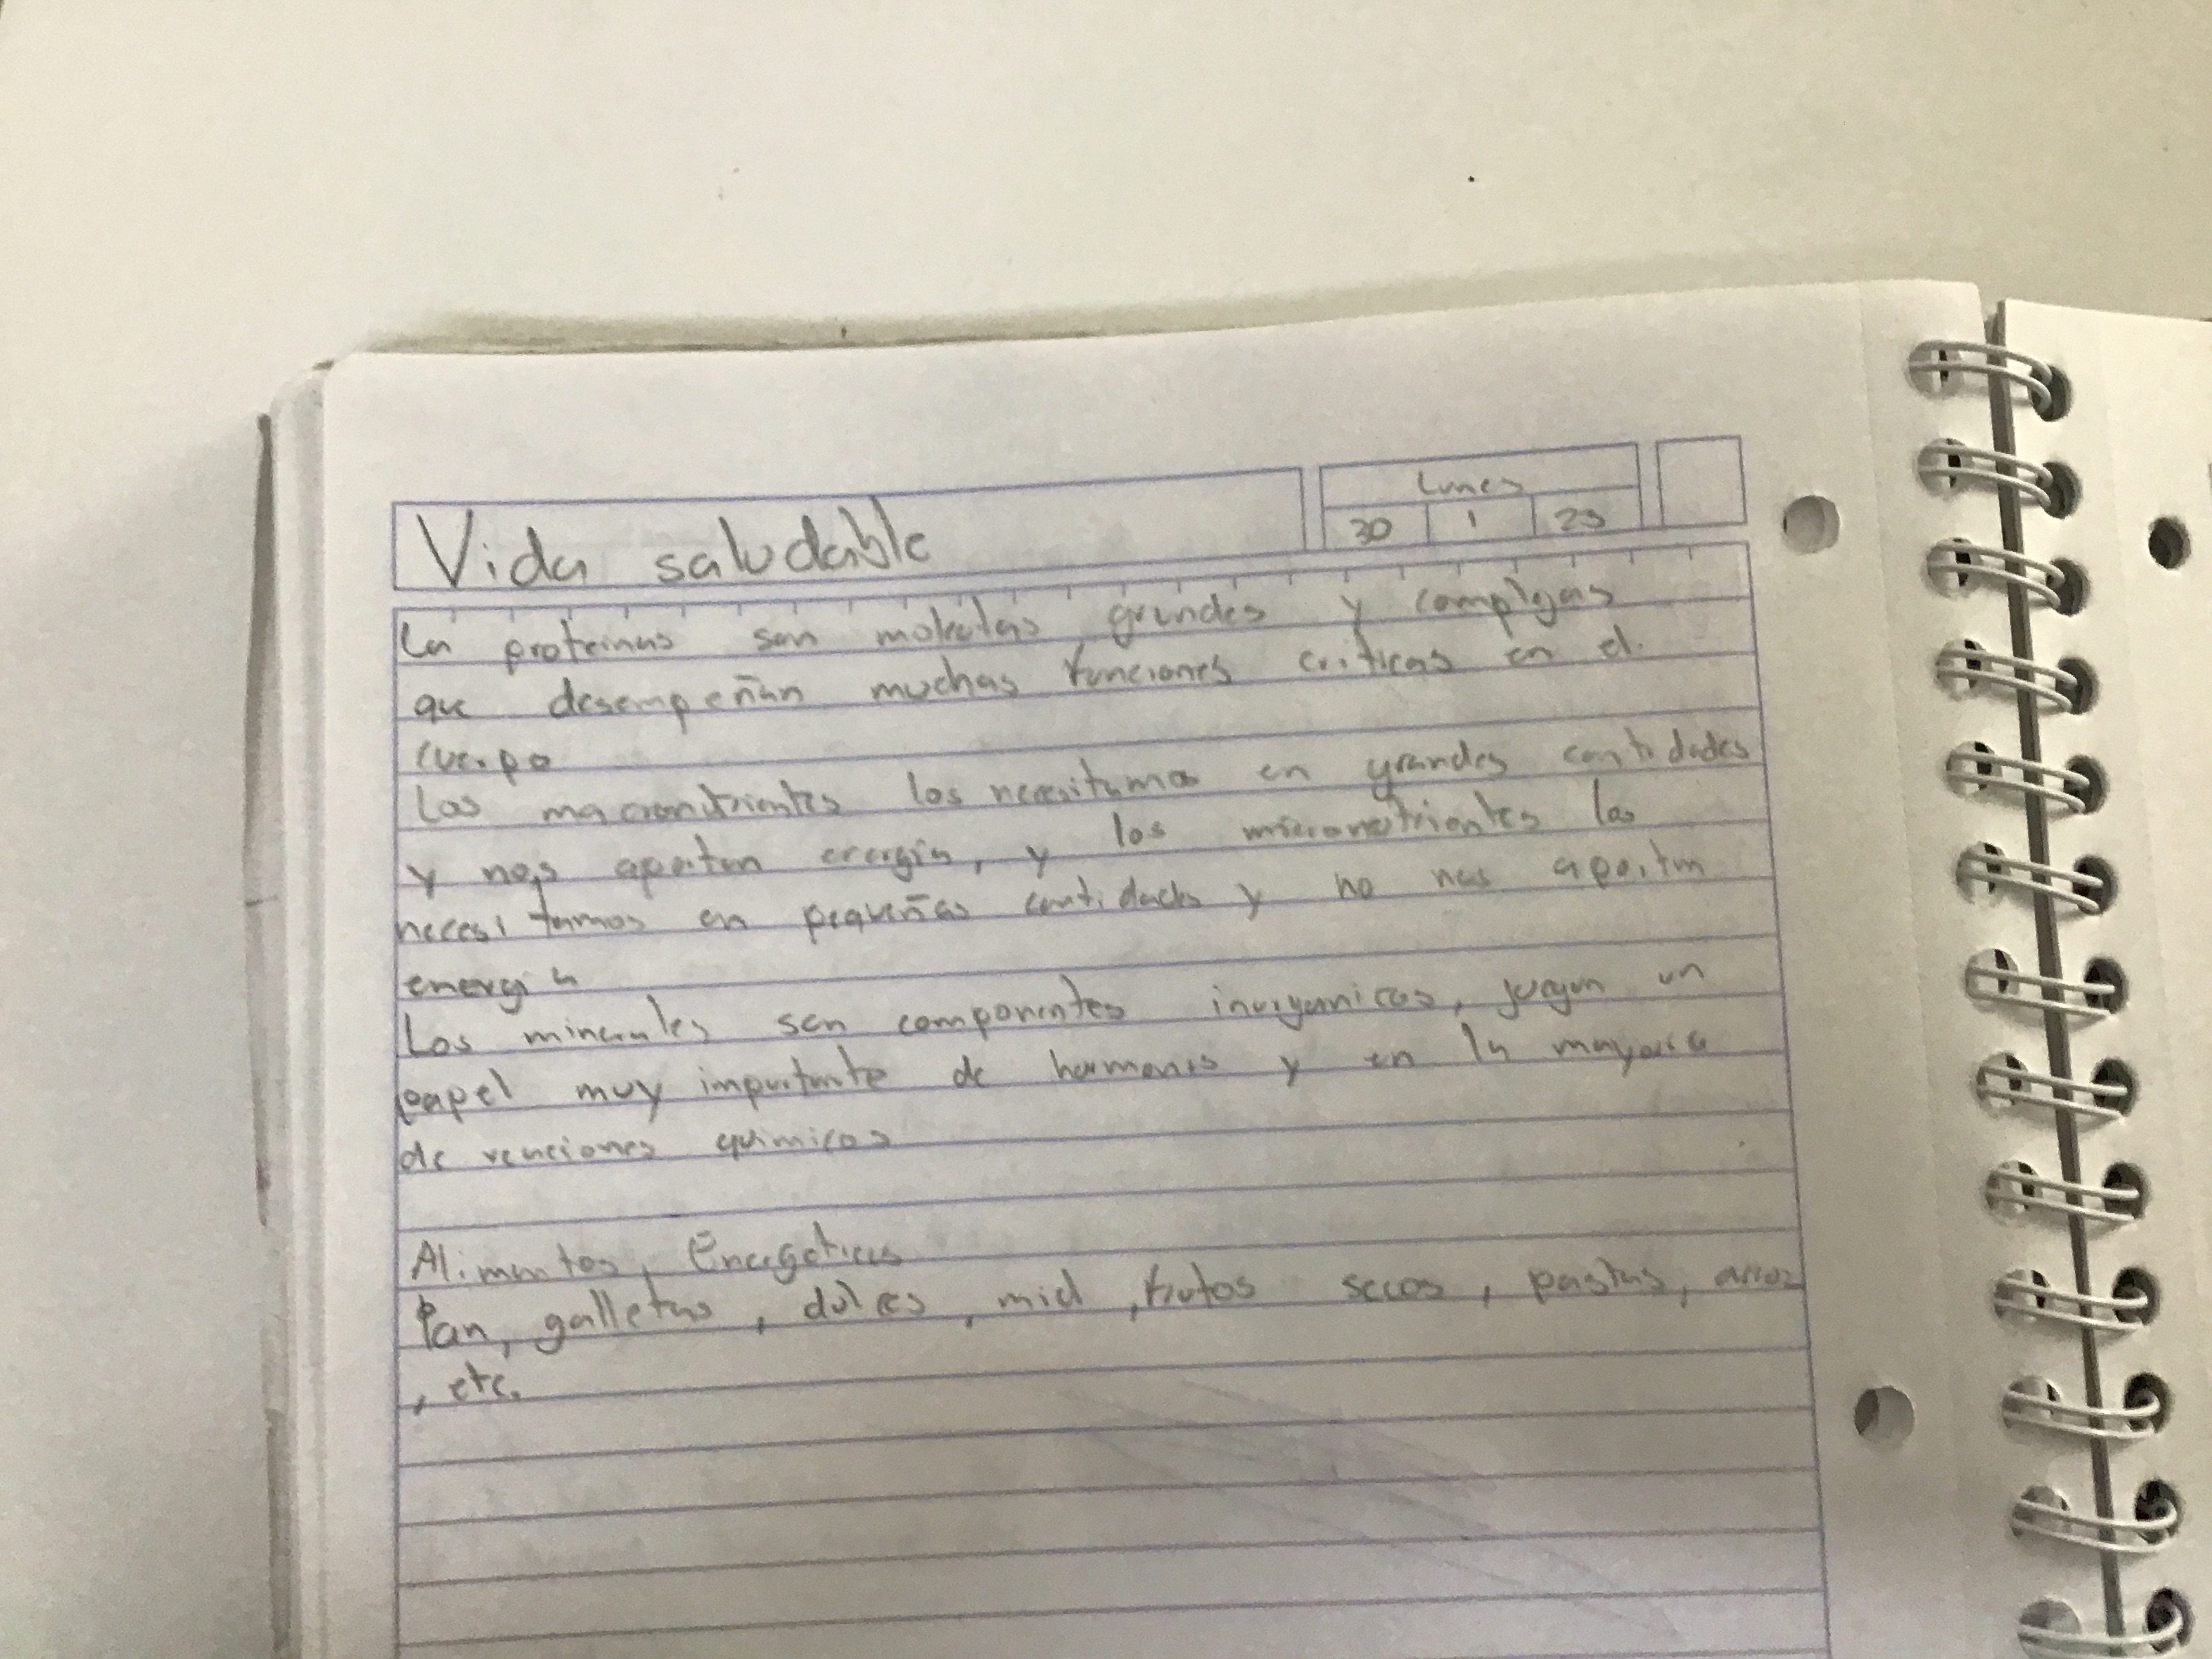 Vida saludable
Lunes
30 1 23
La proteinas son moleculas grandes y complejas
que desempeñan muchas funciones criticas en el
cuerpo
Los macronutrientes los necesitamos en grandes cantidades
y nos aportan energía, y los micronutrientes los
necesitamos en pequeñas cantidades y no nos aportan
energia
Los minerales son componentes inorganicos, juegan un
papel muy importante de hormonas y en la mayoria
de reaciones quimicos
Alimentos, Energeticos
Pan, galletas, dulces, miel, frutos secos, pastas, arroz
, etc.